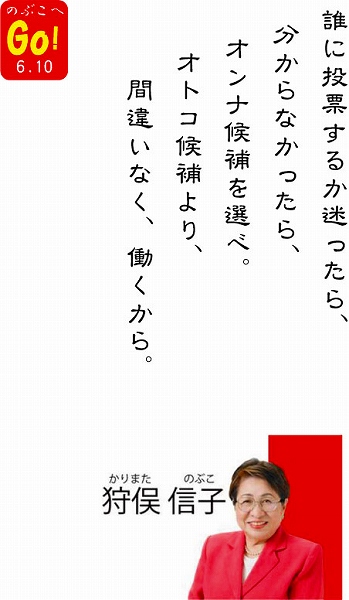 のぶこへ
Go!
6.10
誰に投票するか迷ったら、
分からなかったら、
オンナ候補を選べ。
オトコ候補より、
間違いなく、働くから。
かりまた のぶこ
狩俣 信子